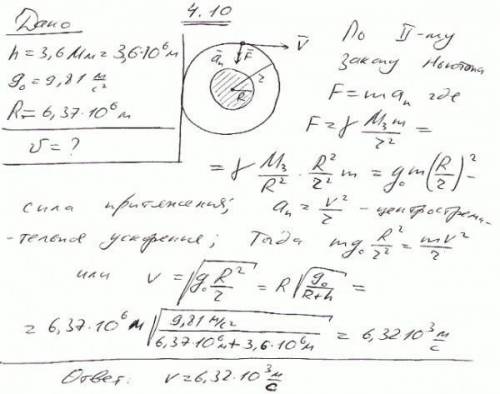 4.10
Дано
h = 3,6 Мм = 3,6·10⁶ м
g₀ = 9,81 м/с²
R = 6,37·10⁶ м
v = ?
aₙ F V r R
По II-му
закону Ньютона
F = maₙ где
F = γ M₃m/r² =
= γ M₃/R² · R²/r² m = g₀m(R/r)² -
сила притяжения; aₙ = v²/r - центростреми-
-тельное ускорение; Тогда mg₀ R²/r² = mv²/r
или v = √(g₀ R²/r) = R √(g₀/(R+h)) =
= 6,37·10⁶ м √(9,81 м/с² / (6,37·10⁶ м + 3,6·10⁶ м)) = 6,32 10³ м/с
Ответ: v = 6,32·10³ м/с